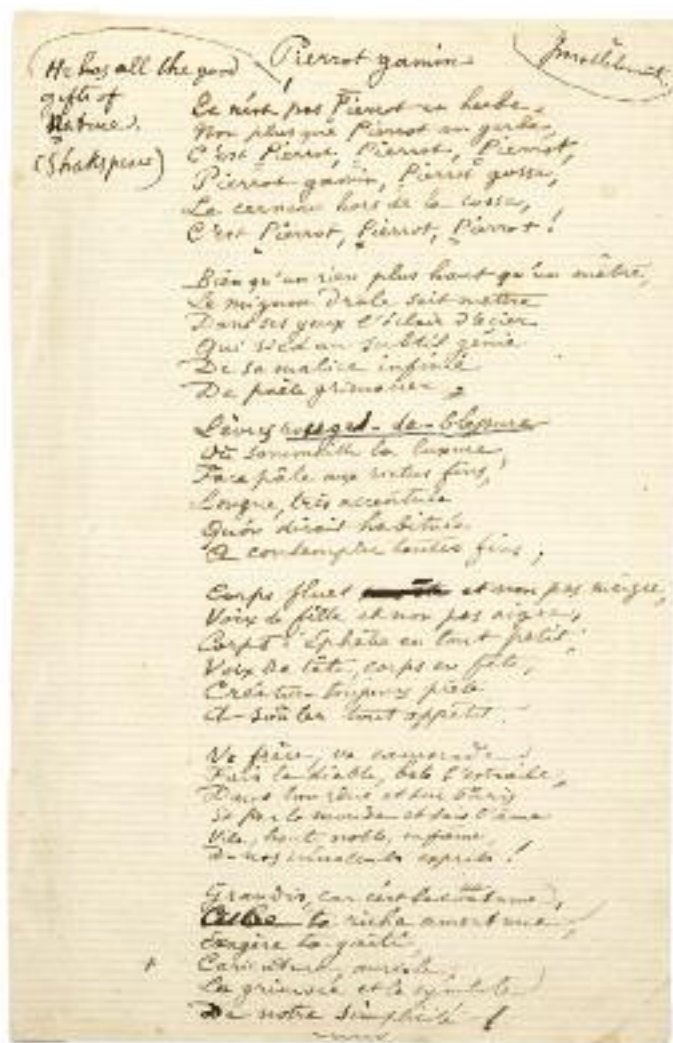 Pierrot gamin
He has all the good
gifts of
Nature.
(Shakspere)
Ce n'est pas Pierrot en herbe
Non plus que Pierrot en gerbe,
C'est Pierrot, Pierrot, Pierrot,
Pierrot gamin, Pierrot gosse,
Le cerneau hors de la cosse,
C'est Pierrot, Pierrot, Pierrot !
Bien qu'un rien plus haut qu'un mètre,
Le mignon drôle sait mettre
Dans ses yeux l'éclair d'acier
Qui sied au subtil génie
De sa malice infinie
De poète grimacier,
Lèvres rouges-de-blessure
Où sommeille la luxure,
Face pâle aux rictus fins,
Longue, très accentuée
Qu'on dirait habituée
A contempler toutes fins,
Corps fluet et non pas maigre,
Voix de fille et non pas aigre,
Corps d'éphèbe en tout petit,
Voix de tête, corps en fête,
Créature toujours prête
A soûler tout appétit.
Va frère, va camarade,
Fais le diable, bats l'estrade,
Dans ton rêve et sur Paris
Et par le monde et sois l'âme
Vile, haute, noble, infâme
De nos innocents esprits !
Grandis, car c'est la coutume,
ta riche amertume,
Exagère ta gaieté
Caricature, auréole,
La grimace et le symbole
De notre simplicité !